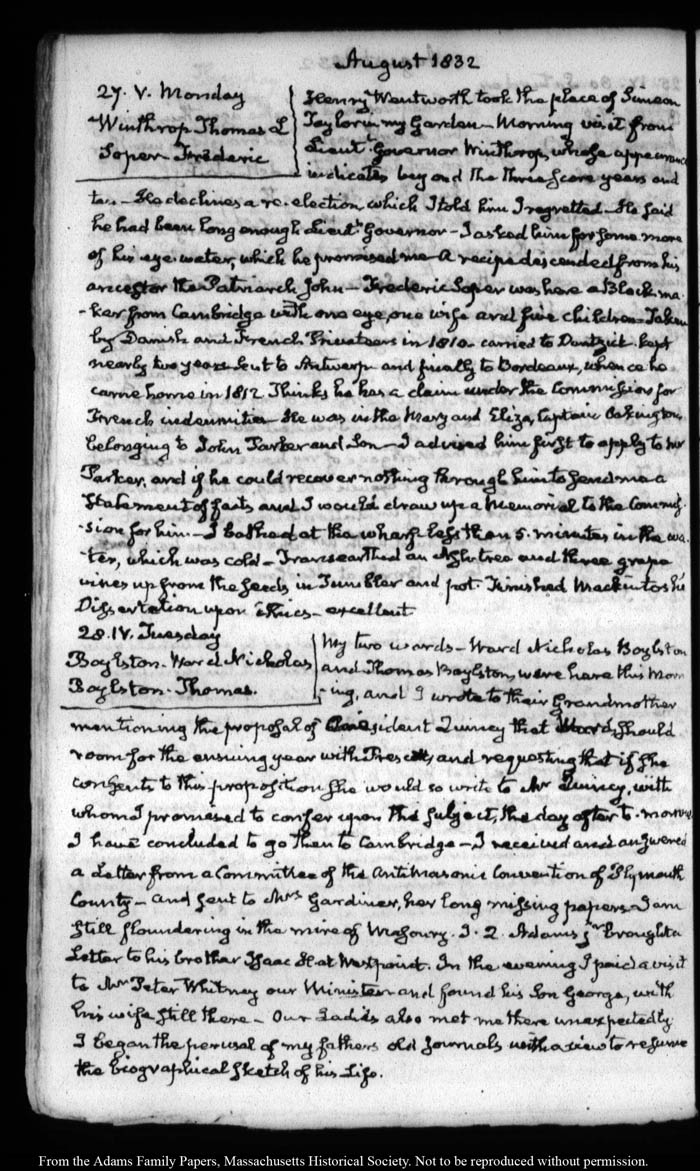 August 1832
27. V. Monday
Winthrop Thomas L
Soper Frederic
Henry Wentworth took the place of Simeon
Taylor in my Garden — Morning visit from
Lieutt. Governor Winthrop, whose appearance
indicates beyond the three score years and
ten — He declines a re-election which I told him I regretted — He said
he had been long enough Lieutt. Governor — I asked him for some more
of his eye-water, which he promised me — A recipe descended from his
ancestor the Patriarch John — Frederic Soper was here a Block ma-
-ker from Cambridge with one eye, one wife and five children — Taken
by Danish and French Privateers in 1810 — carried to Dantzick. kept
nearly two years sent to Antwerp and finally to Bordeaux, whence he
came home in 1812. Thinks he has a claim under the Commission for
French indemnities — He was in the Mary and Eliza, Captain
belonging to John Parker and Son — I advised him first to apply to Mr
Parker, and if he could recover nothing through him to send me a
Statement of facts and I would draw up a Memorial to the Commis-
-sion for him — I bathed at the wharf less than 5. minutes in the wa-
-ter, which was cold — Transearthed an Ash tree and three grape
vines up from the seeds in Tumbler and pot. Finished Mackintosh's
Dissertation upon Ethics — excellent
28. IV. Tuesday
Boylston. Ward Nicholas
Boylston. Thomas.
My two wards — Ward Nicholas Boylston
and Thomas Boylston, were here this Morn
-ing, and I wrote to their Grandmother
mentioning the proposal of President Quincy that Ward should
room for the ensuing year with and requesting that if she
consents to this proposition she would so write to Mr Quincy, with
whom I promised to confer upon the subject, the day after to-morrow
I have concluded to go then to Cambridge — I received and answered
a Letter from a Committee of the Antimasonic Convention of Plymouth
County — and sent to Mrs Gardiner, her long missing papers I am
still floundering in the mire of Masonry. J. Q. Adams jr brought a
Letter to his brother Isaac H at Westpoint. In the evening I paid a visit
to Mr Peter Whitney our Minister and found his Son George, with
his wife still there — Our Ladies also met me there unexpectedly
I began the perusal of my fathers old Journals with a view to resume
the biographical Sketch of his Life.
From the Adams Family Papers, Massachusetts Historical Society. Not to be reproduced without permission.